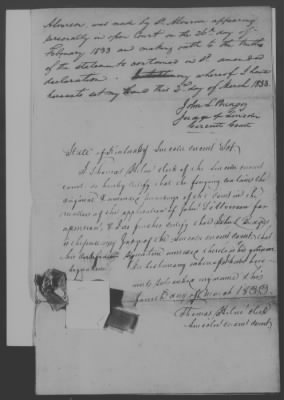 Alverson, was made by Sd. Alverson appearing
personally in open Court on the 26th day of
February 1833 and making oath to the truths
of the statements contained in sd. amended
declaration. In testimony whereof I have
hereunto set my hand this 2d day of March 1833.
John L Bridges
Judge of Lincoln
Circuit Court
State of Kentucky Lincoln circuit Sct.
I Thomas Helm clerk of the Lincoln circuit
court do hereby certify that the foregoing contains the
original & amended proceedings of the said court in the
matter of the application of John S Alverson for
a pension, & I do further certify that John L Bridges
is the presiding Judge of the Lincoln circuit court, that
his signature annexed thereto is his genuine
signature
In testimony whereof I have here
unto subscribed my name this
fourth day of March 1833
Thomas Helm clerk
Lincoln circuit court